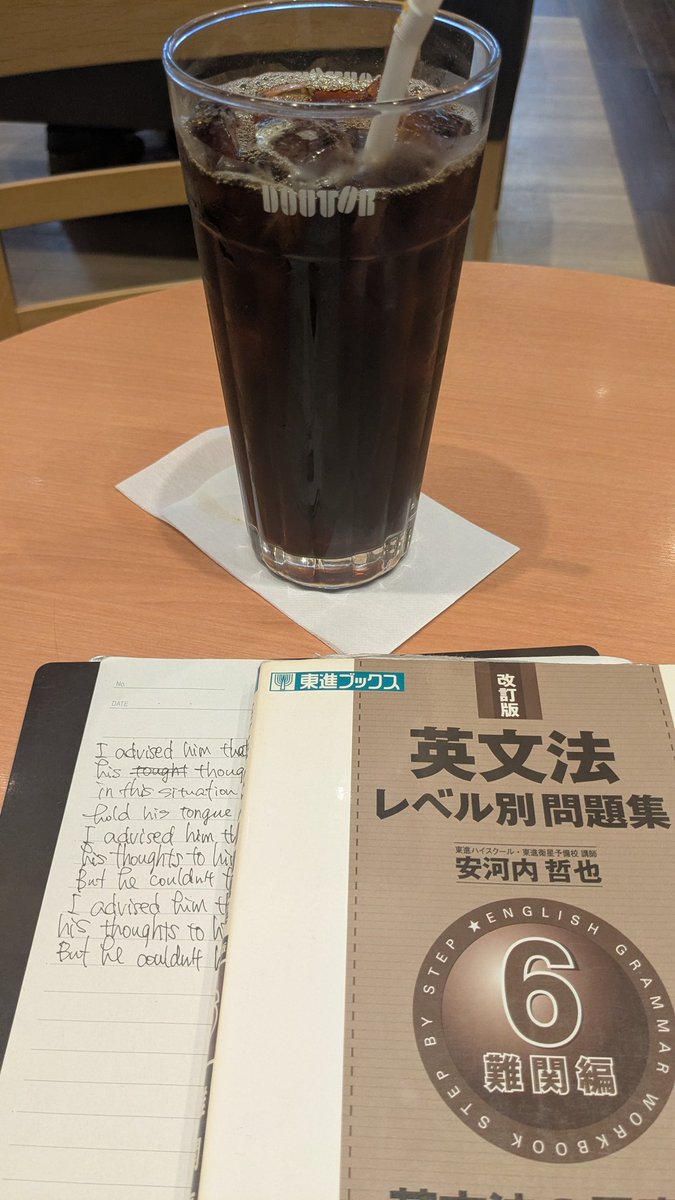 DOUTOR
No.
DATE
I advised him that
his tought thoug
in this situation
hold his tongue
I advised him th
his thoughts to hi
But he couldn't
I advised him th
his thoughts to h
But he couldn't
東進ブックス
改訂版
英文法
レベル別問題集
東進ハイスクール・東進衛星予備校 講師
安河内 哲也
STEP BY STEP ★ ENGLISH GRAMMAR WORKBOOK
6
難関編